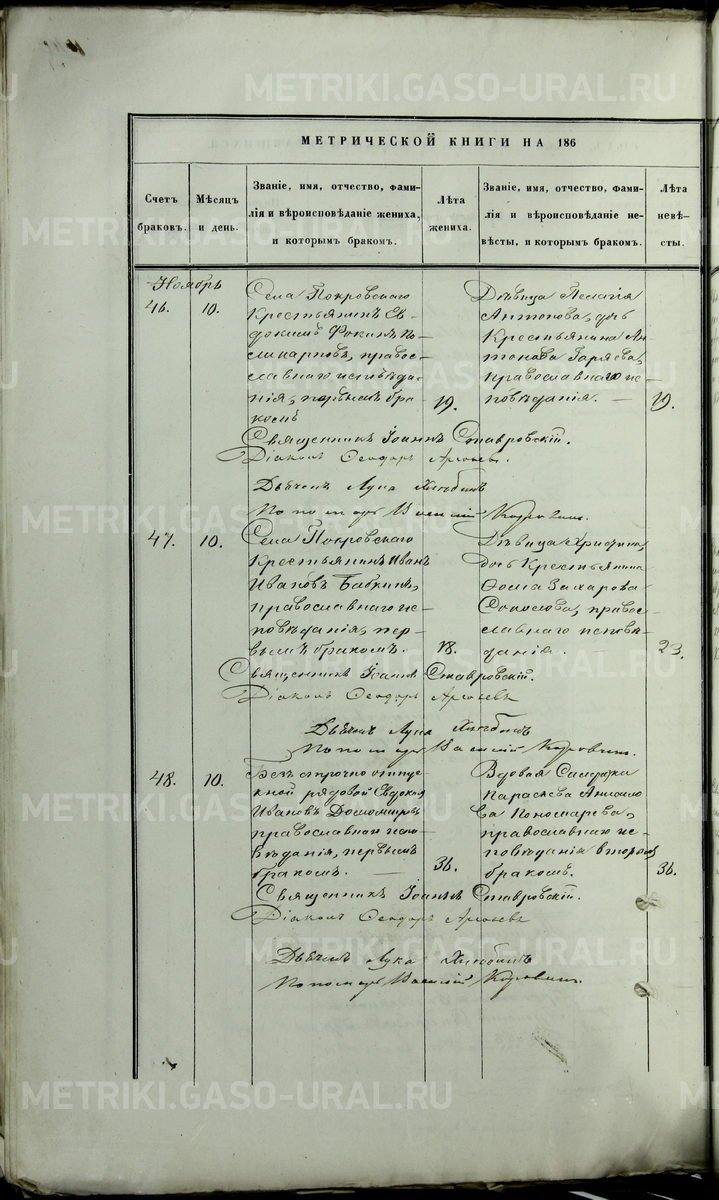 METRIKI.GASO-URAL.RU
МЕТРИЧЕСКОЙ КНИГИ НА 186
Счетъ браковъ.
Мѣсяцъ и день.
Званіе, имя, отчество, фами-
лія и вѣроисповѣданіе жениха,
и которымъ бракомъ.
Лѣта жениха.
Званіе, имя, отчество, фами-
лія и вѣроисповѣданіе не-
вѣсты, и которымъ бракомъ.
Лѣта невѣ-
сты.
Ноябрь
46. 10.
Села Покровскаго
Крестьянинъ Ев-
докимъ Фокинъ По-
ликарповъ, правос-
лавнаго исповѣда-
нія, первымъ бра-
комъ
19.
Дѣвица Пелагія
Антонова, дочь
Крестьянина Ан-
тонова Горяева,
православнаго ис-
повѣданія.
19.
Священникъ Іоаннъ Ставровскій.
Діаконъ Ѳеодоръ
Дьячекъ Лука
Пономарь Василій Коровинъ.
47. 10.
Села Покровскаго
Крестьянинъ Иванъ
Ивановъ Бабкинъ,
православнаго ис-
повѣданія, пер-
вымъ бракомъ.
18.
Дѣвица Христина,
дочь Крестьянина
Ѳома Захарова
правос-
лавнаго исповѣ-
данія.
23.
Священникъ Іоаннъ Ставровскій.
Діаконъ Ѳеодоръ
Дьячекъ Лука
Пономарь Василій Коровинъ.
48. 10.
Безсрочно отпус-
кной рядовой
Ивановъ
православнаго испо-
вѣданія, первымъ
бракомъ.
36.
Вдовая Солдатка
Параскева
Пономарева,
православнаго ис-
повѣданія вторымъ
бракомъ.
36.
Священникъ Іоаннъ Ставровскій.
Діаконъ Ѳеодоръ
Дьячекъ Лука
Пономарь Василій Коровинъ.